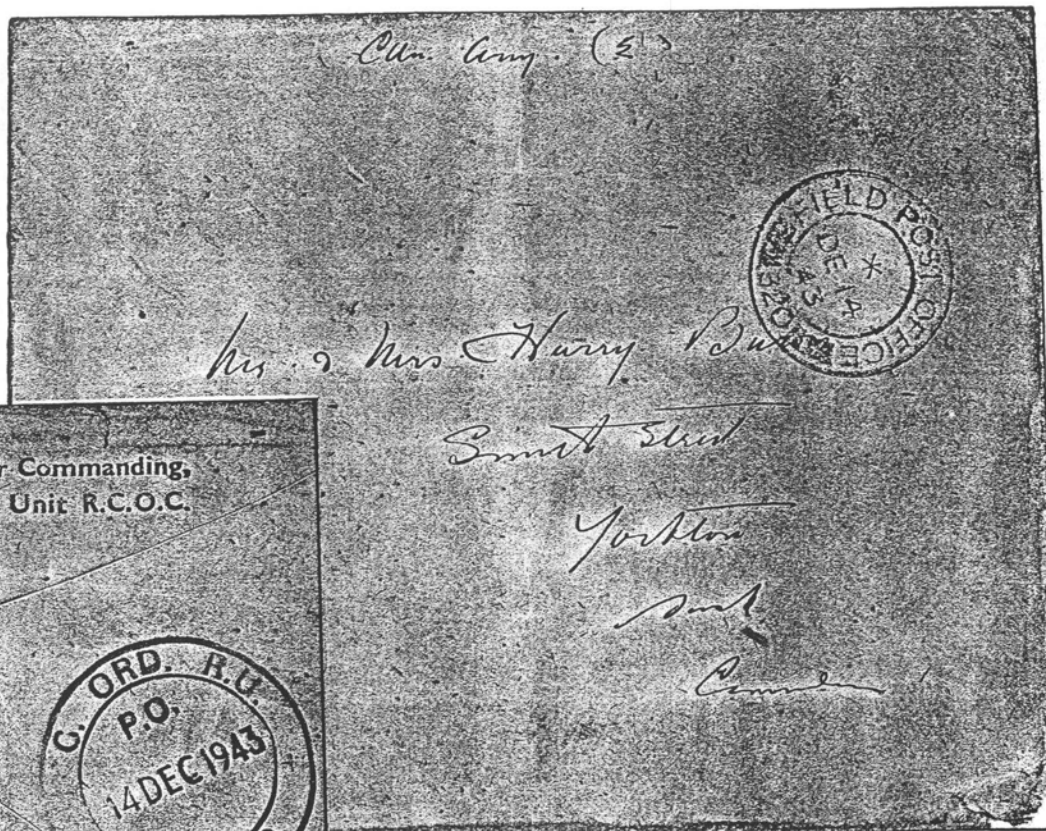 Cdn. Army. (
FIELD POST OFFICE
DE 14
43
Mr. & Mrs. Harry
Smith Street
Yorkton
Sask
Canada
r Commanding,
Unit R.C.O.C.
C. ORD. R.U.
P.O.
14 DEC 1943